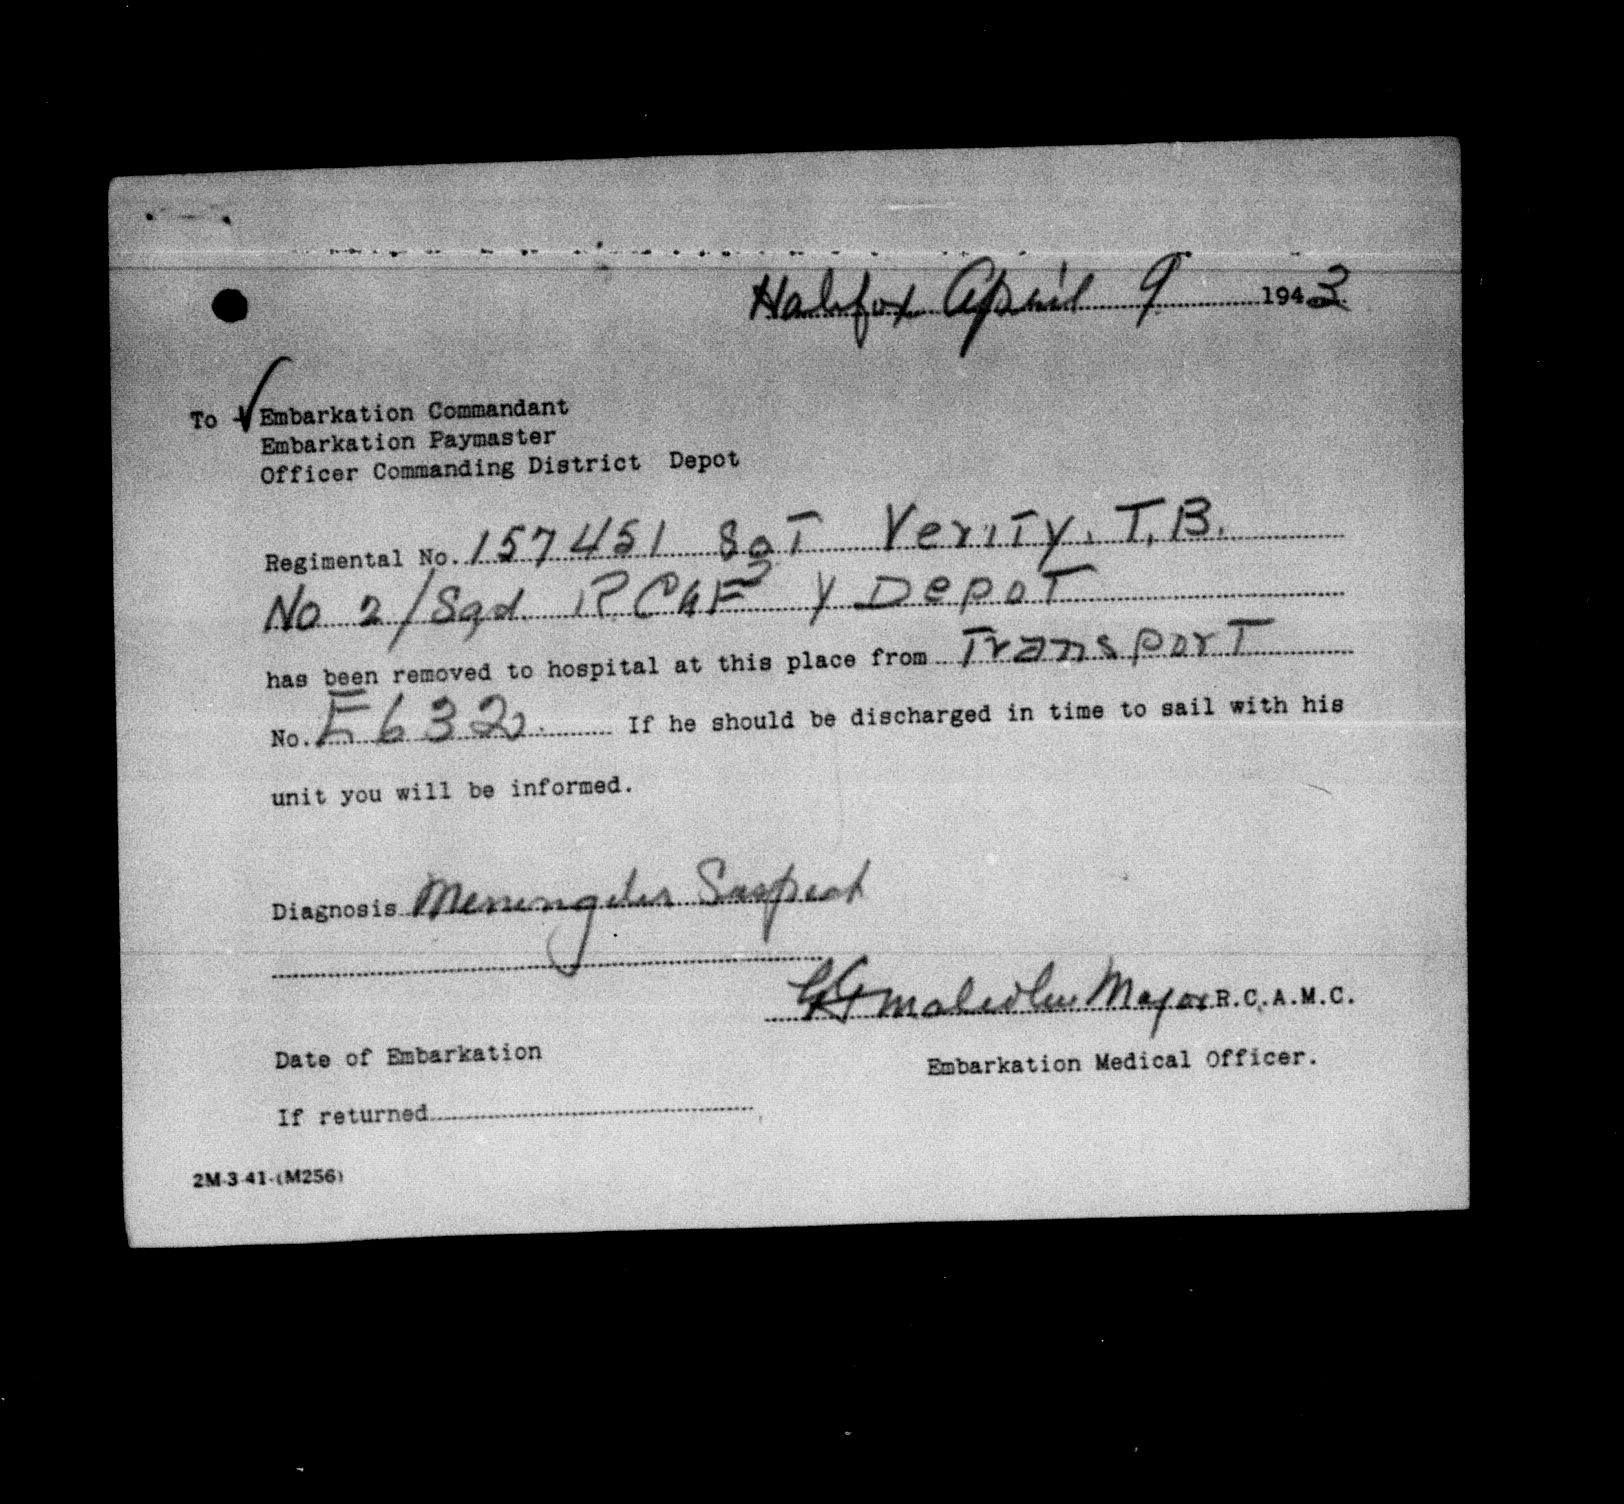 Halifax April 9 1943
To ✓ Embarkation Commandant
Embarkation Paymaster
Officer Commanding District Depot
Regimental No. 157451 SgT VeriTy, T.B.
No 2/Sqd. RCAF Y DepoT
has been removed to hospital at this place from TransporT
No. E632. If he should be discharged in time to sail with his
unit you will be informed.
Diagnosis Meningitis Suspect
Malcolm Major R.C.A.M.C.
Embarkation Medical Officer.
Date of Embarkation
If returned
2M-3-41-(M256)